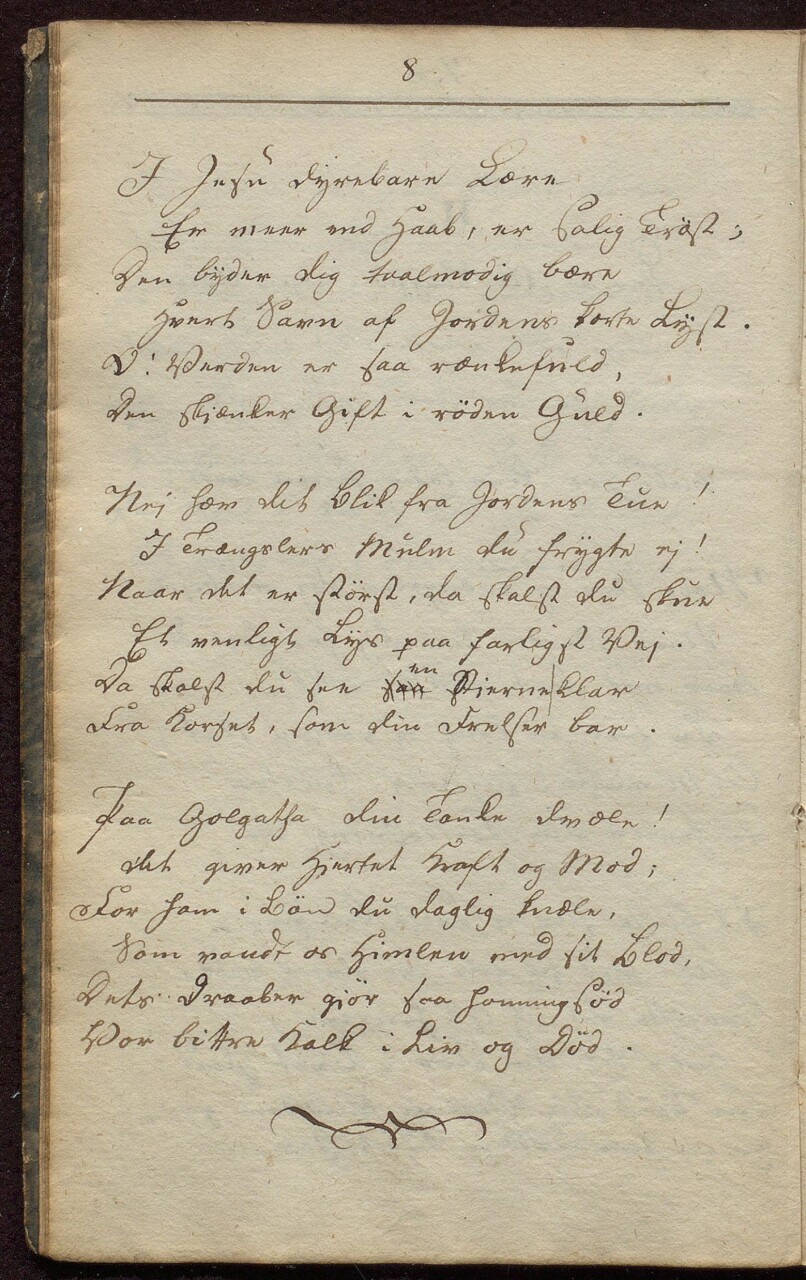 8
I Jesu dyrebare Lære
Er meer end Haab, er salig Trøst;
Den byder dig taalmodig bære
Hvert Savn af Jordens korte Lyst.
O! Verden er saa rænkefuld,
Den skjænker Gift i röden Guld.
Nej hæv dit Blik fra Jordens Tue!
I Trængslers Mulm du frygte ej!
Naar det er störst, da skalst du skue
Et venligt Lys paa farligst Vej.
Da skalst du see en Stierneklar
Fra Korset, som din Frelser bar.
Paa Golgatha din Tanke dvæle!
det giver Hjertet Kraft og Mod;
For ham i Bön du daglig knæle,
Som vandt os Himlen med sit Blod,
Dets Draaber gjör saa honningsød
Vor bittre Kalk i Liv og Død.